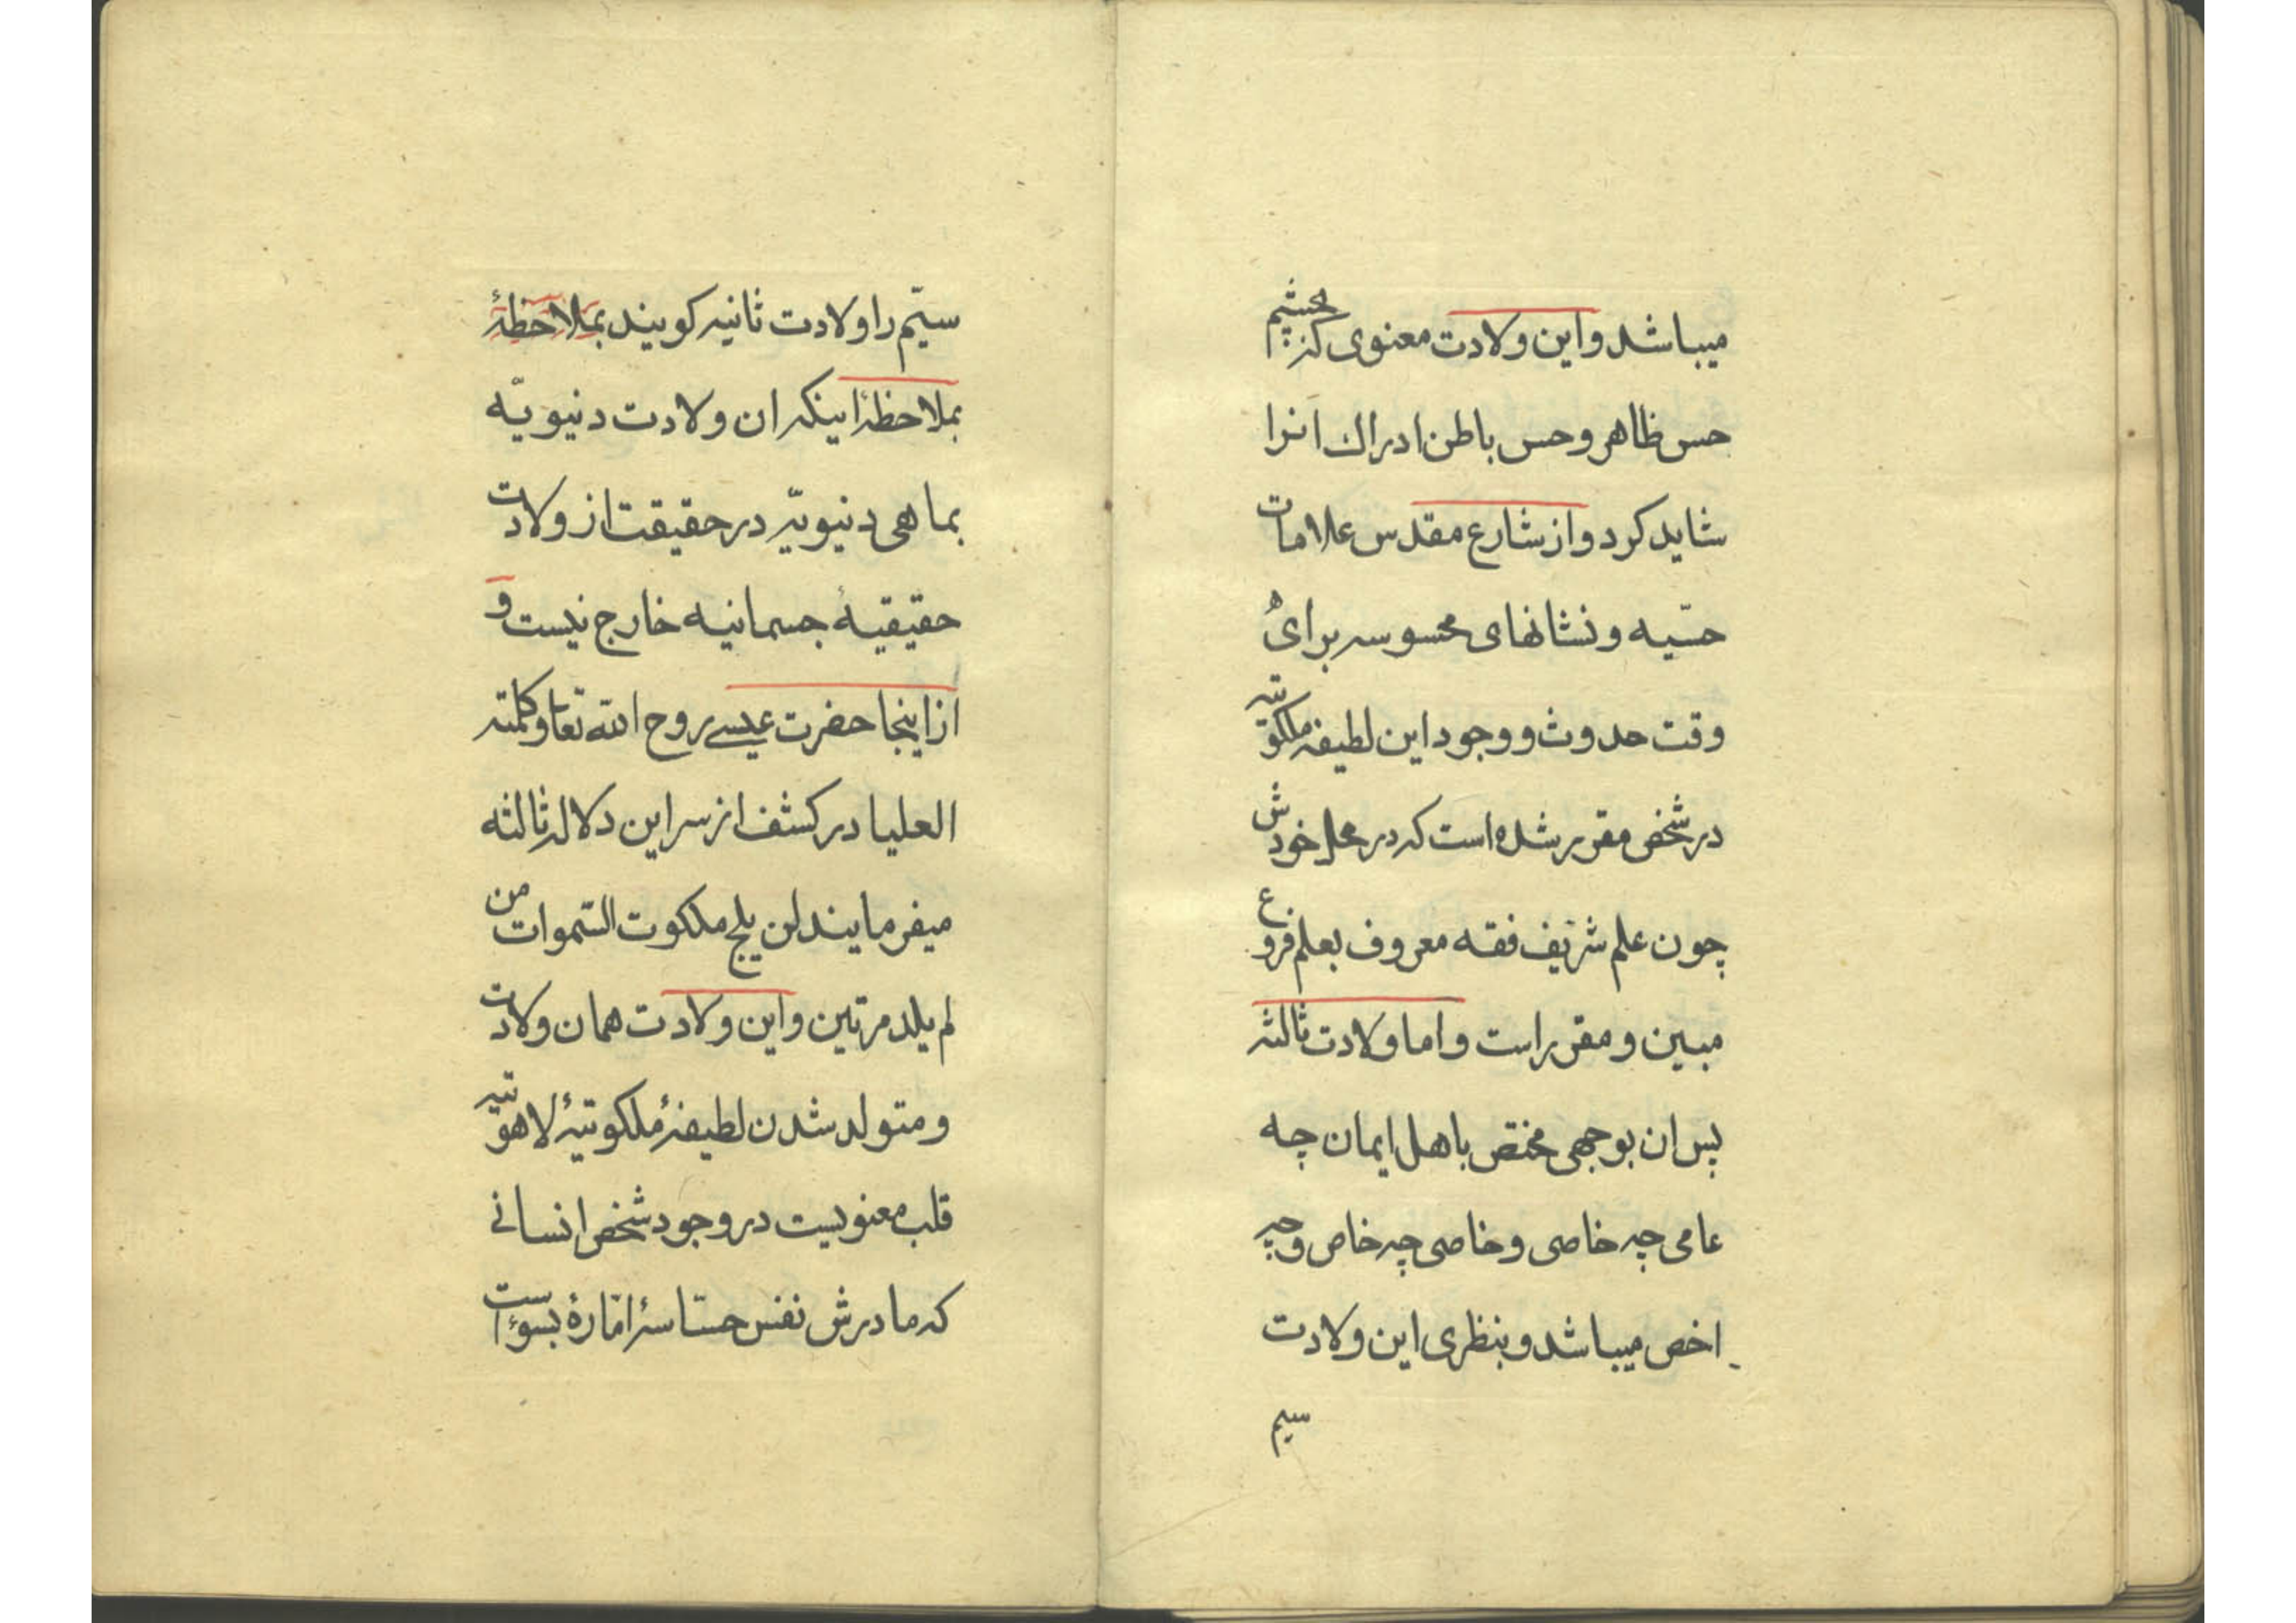 میباشد واین ولادت معنوی که بچشم
حس ظاهر و حس باطن ادراک انرا
شاید کرد واز شارع مقدس علامات
حسّیه و نشانهای محسوسه برای
وقت حدوث و وجود این لطیفهٔ ملکوتیه
در شخص مقرر شده است که در محل خودش
چون علم شریف فقه معروف بعلم فروع
مبین و مقرر است واما ولادت ثالثه
پس ان بوجهی مختص باهل ایمان چه
عامی چه خاصی و خاصی چه خاص و چه
اخص میباشد و بنظری این ولادت
سیم
سیّم را ولادت ثانیه کویند بملاحظهٔ
بملاحظهٔ اینکه ان ولادت دنیویّه
بما هی دنیویّه در حقیقت از ولادت
حقیقیهٔ جسمانیه خارج نیست و
از اینجا حضرت عیسی روح الله تعا و کلمته
العلیا در کشف از سر این دلاله ثالثه
میفرمایند لن یلج ملکوت السّموات من
لم یلد مرتین واین ولادت همان ولادت
و متولد شدن لطیفهٔ ملکوتیهٔ لاهوتیه
قلب معنویست در وجود شخص انسانی
که مادرش نفس حسّاسهٔ امّارهٔ بسوء است